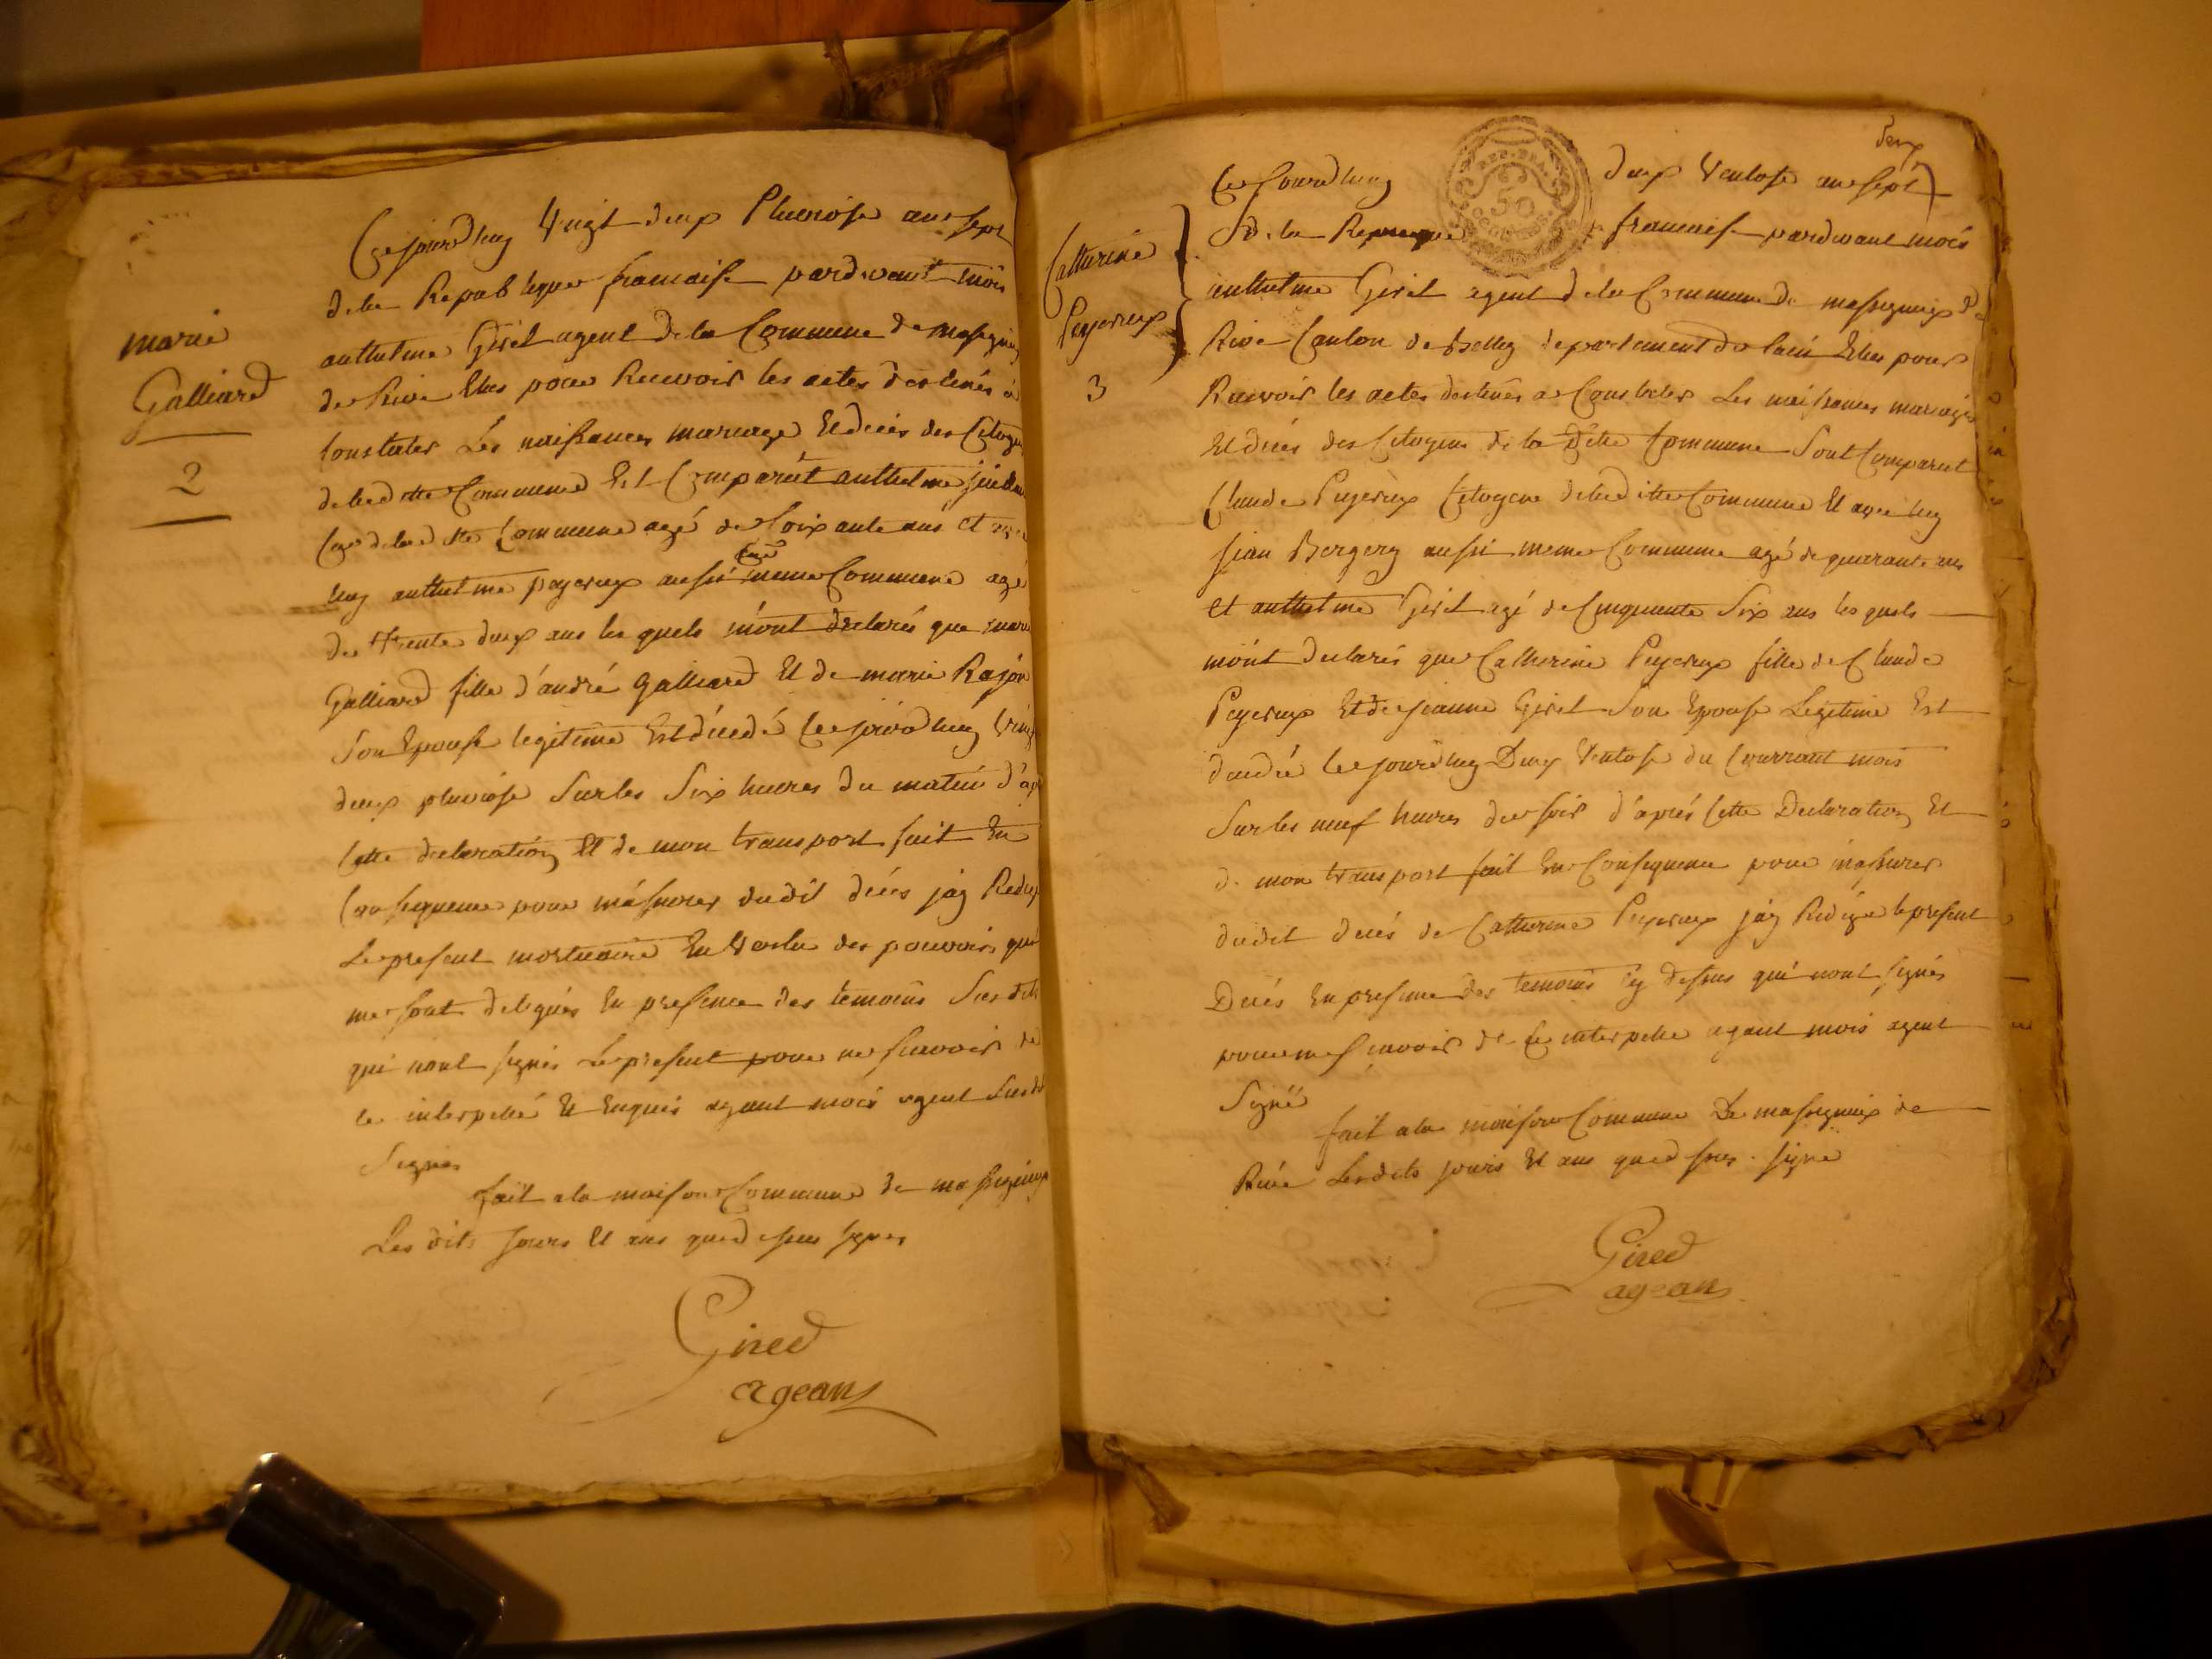 marie
Galliard
2
Cejourdhuy Vingt deux Pluviose an sept
dela Republique francaise pardevant mois
anthelme Girel agent dela Commune de massignieu
de Rive Elus pour Recevoir les actes destinés à
Constater Les naissances mariage Et decés des Citoyens
deladitte Commune Est Comparüt anthelme
deladitte Commune agé de soixante ans et avec
luy anthelme peyereux aussi meme Commune agé
de trente deux ans les quels m'ont declarés que marie
Galliard fille d'andré Galliard Et de marie Rajon
son Epouse legitime Est décedé Cejourdhuy Vingt
deux pluviose sur les six heures du matin d'aprés
Cette declaration Et de mon transport fait En
Consequence pour m'assurer dudit décés j'ay Redigé
Le present mortuaire En Vertu des pouvoirs qui
me sont delegués En presence des temoins susdits
qui n'ont signés Le present pour ne scavoir de
ce interpellé Et Enquis ayant mois agent susdit
Signés
fait ala maison Commune de massignieux
Les dits Jours Et ans quedessus signes
Gired
agean
deux
Catherine
Peyereux
3
Cejourdhuy deux Ventose an sept
de la Republique francaise pardevant mois
anthelme Girel agent dela Commune de massignieux de
Rive Canton de Belley departement de lain Elus pour
Recevoir les actes destinés a Constater Les naissances mariages
Et décés des Citoyens de la dite Commune Sont Comparut
Claude Peyereux Citoyens deladitte Commune Et avec luy
jean Bergery aussi meme Commune agé de quarante ans
Et anthelme Girel agé de Cinquente Six ans les quels
m'ont declarés que Catherine Peyereux fille de Claude
Peyereux Et de jeanne Girel son Epouse Legitime Est
decedée Cejourdhuy Deux Ventose du Courrant mois
sur les neuf heures du soir d'aprés Cette Declaration Et
de mon transport fait En Consequence pour m'assurer
dudit decés de Catherine Peyereux j'ay Redigé le present
Decés En presence des temoins cy dessus qui n'ont signés
pour ne scavoir de ce interpellé ayant mois agent
Signé
fait ala maison Commune De massignieux de
Rive Lesdits jours Et ans quedessus. signé
Gired
agean
REP. FRA.
50
CENTIMES